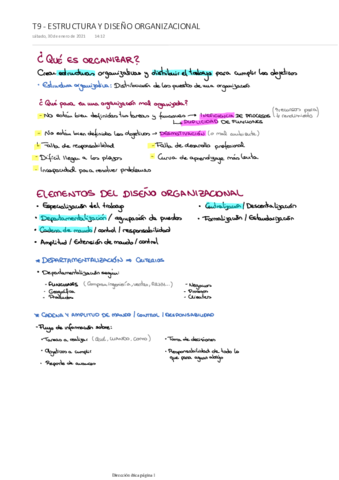 T9 - ESTRUCTURA Y DISEÑO ORGANIZACIONAL
¿QUÉ ES ORGANIZAR?
Crear estructuras organizativas y distribuir el trabajo para cumplir los objetivos
- Estructura organizativa: Distribución de los puestos de una organización
¿Qué pasa en una organización mal organizada?
- No están bien definidas las tareas y funciones → DE PROCESOS
↳ DUPLICIDAD DE FUNCIONES
- No están bien definidos los objetivos → DESMOTIVACIÓN (o mal ambiente)
- Falta de responsabilidad - Falta de desarrollo profesional
- Difícil llegar a los plazos - Curva de aprendizaje más lenta
- Incapacidad para resolver problemas
ELEMENTOS DEL DISEÑO ORGANIZACIONAL
• Especialización del trabajo • Centralización / Descentralización
• Departamentalización / agrupación de puestos • Formalización / Estandarización
• Cadena de mando / control / responsabilidad
• Amplitud / Extensión de mando / control
DEPARTAMENTALIZACIÓN → CRITERIOS
• Departamentalización según:
- FUNCIONES (Compras, ingeniería, ventas, RRHH...) - Negocios
- Geográfica - Procesos
- Productos - Clientes
CADENA Y AMPLITUD DE MANDO / CONTROL / RESPONSABILIDAD
• Flujo de información sobre:
- Tareas a realizar (Qué, cuándo, cómo) - Toma de decisiones
- Objetivos a cumplir - Responsabilidad de todo lo
que pasa aguas abajo
- Reporte de avances
Dirección ética página 1